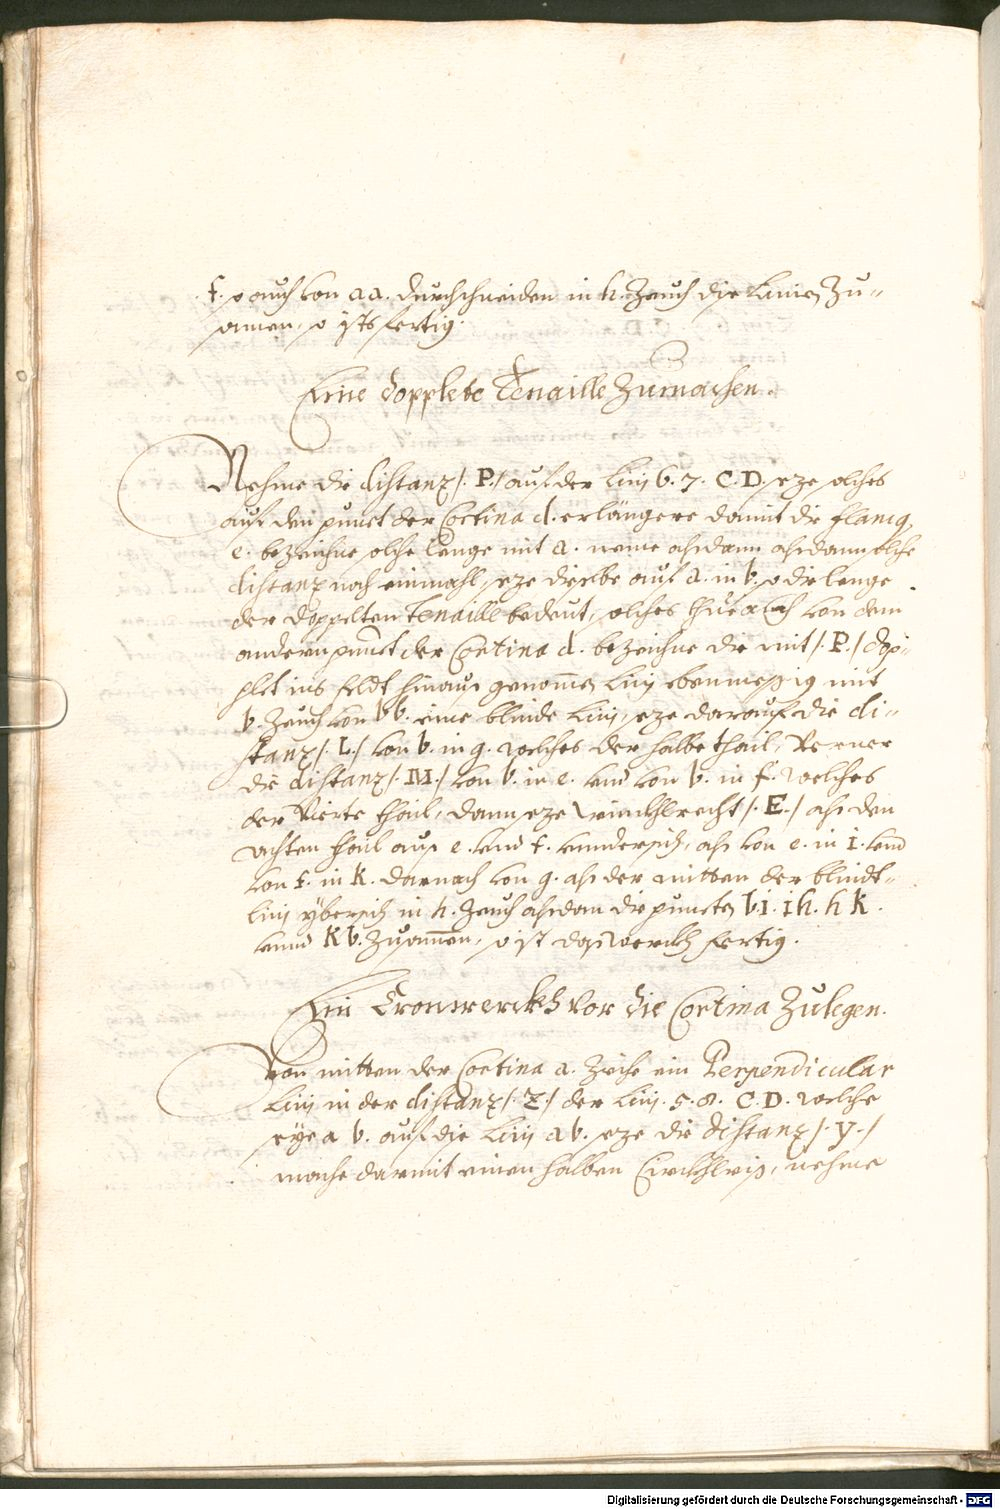 f. so auch von a a. durchschneiden in h. Zeuch die Linien Zu=
samen, so ists fertig.
Eine dopplete Tenaille Zumachen.
Nehme die distanz /. P. / auf der Linj 6. 7. C. D. seze solches
auf den punct der Cortina d. erlängere damit die flancq,
e. bezeichne solche lenge mit a. neme alsdann alsdann solche
distanz noch einmahl, seze dieselbe auf a. in b. so die lenge
der doppelten Tenaille bedeut, solches thue auch von dem
andern punct der Cortina d. bezeichne die mit /. P. / dop=
plet ins feldt hinauß genomen Linj ebenmessig mit
b. Zeuch von b b. eine blinde Linj, seze darauf die di=
stanz /. L. / von b. in g. welches der halbe theil, Verner
die distanz /. M. / von b. in e. und von b. in f. welches
der Vierte theil, dann seze winckhlrecht /. E. / als den
achten theil auß e. und f. unndersich, als von e. in i. und
von f. in k. darnach von g. als der mitten der blindt=
linj ybersich in h. Zeuch alsdan die puncten b. i. i h. h k.
unnd k b. Zusamen, so ist das werckh fertig.
Ein Cronwerckh vor die Cortina Zulegen.
Von mitten der Cortina a. Ziehe ein Perpendicular
Linj in der distanz /. Z. / der Linj. 5. 8. C. D. welche
seye a b. auf die Linj a b. seze die distanz /. y. /
mache darmit einen halben Circkhlriß, nehme
Digitalisierung gefördert durch die Deutsche Forschungsgemeinschaft - DFG